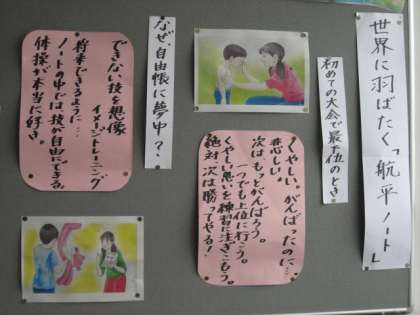 世界に羽ばたく「航平ノート」
初めての大会で最下位のとき
くやしい。がんばったのに…
悲しい。
次はもっとがんばろう。
一つでも上位に行こう。
くやしい思いを練習に注ぎこもう。
絶対、次は勝ってやる！
なぜ、自由帳に夢中？
できない技を想像
イメージトレーニング
将来できるように…
ノートの中では、技が自由にできる。
体操が本当に好き。